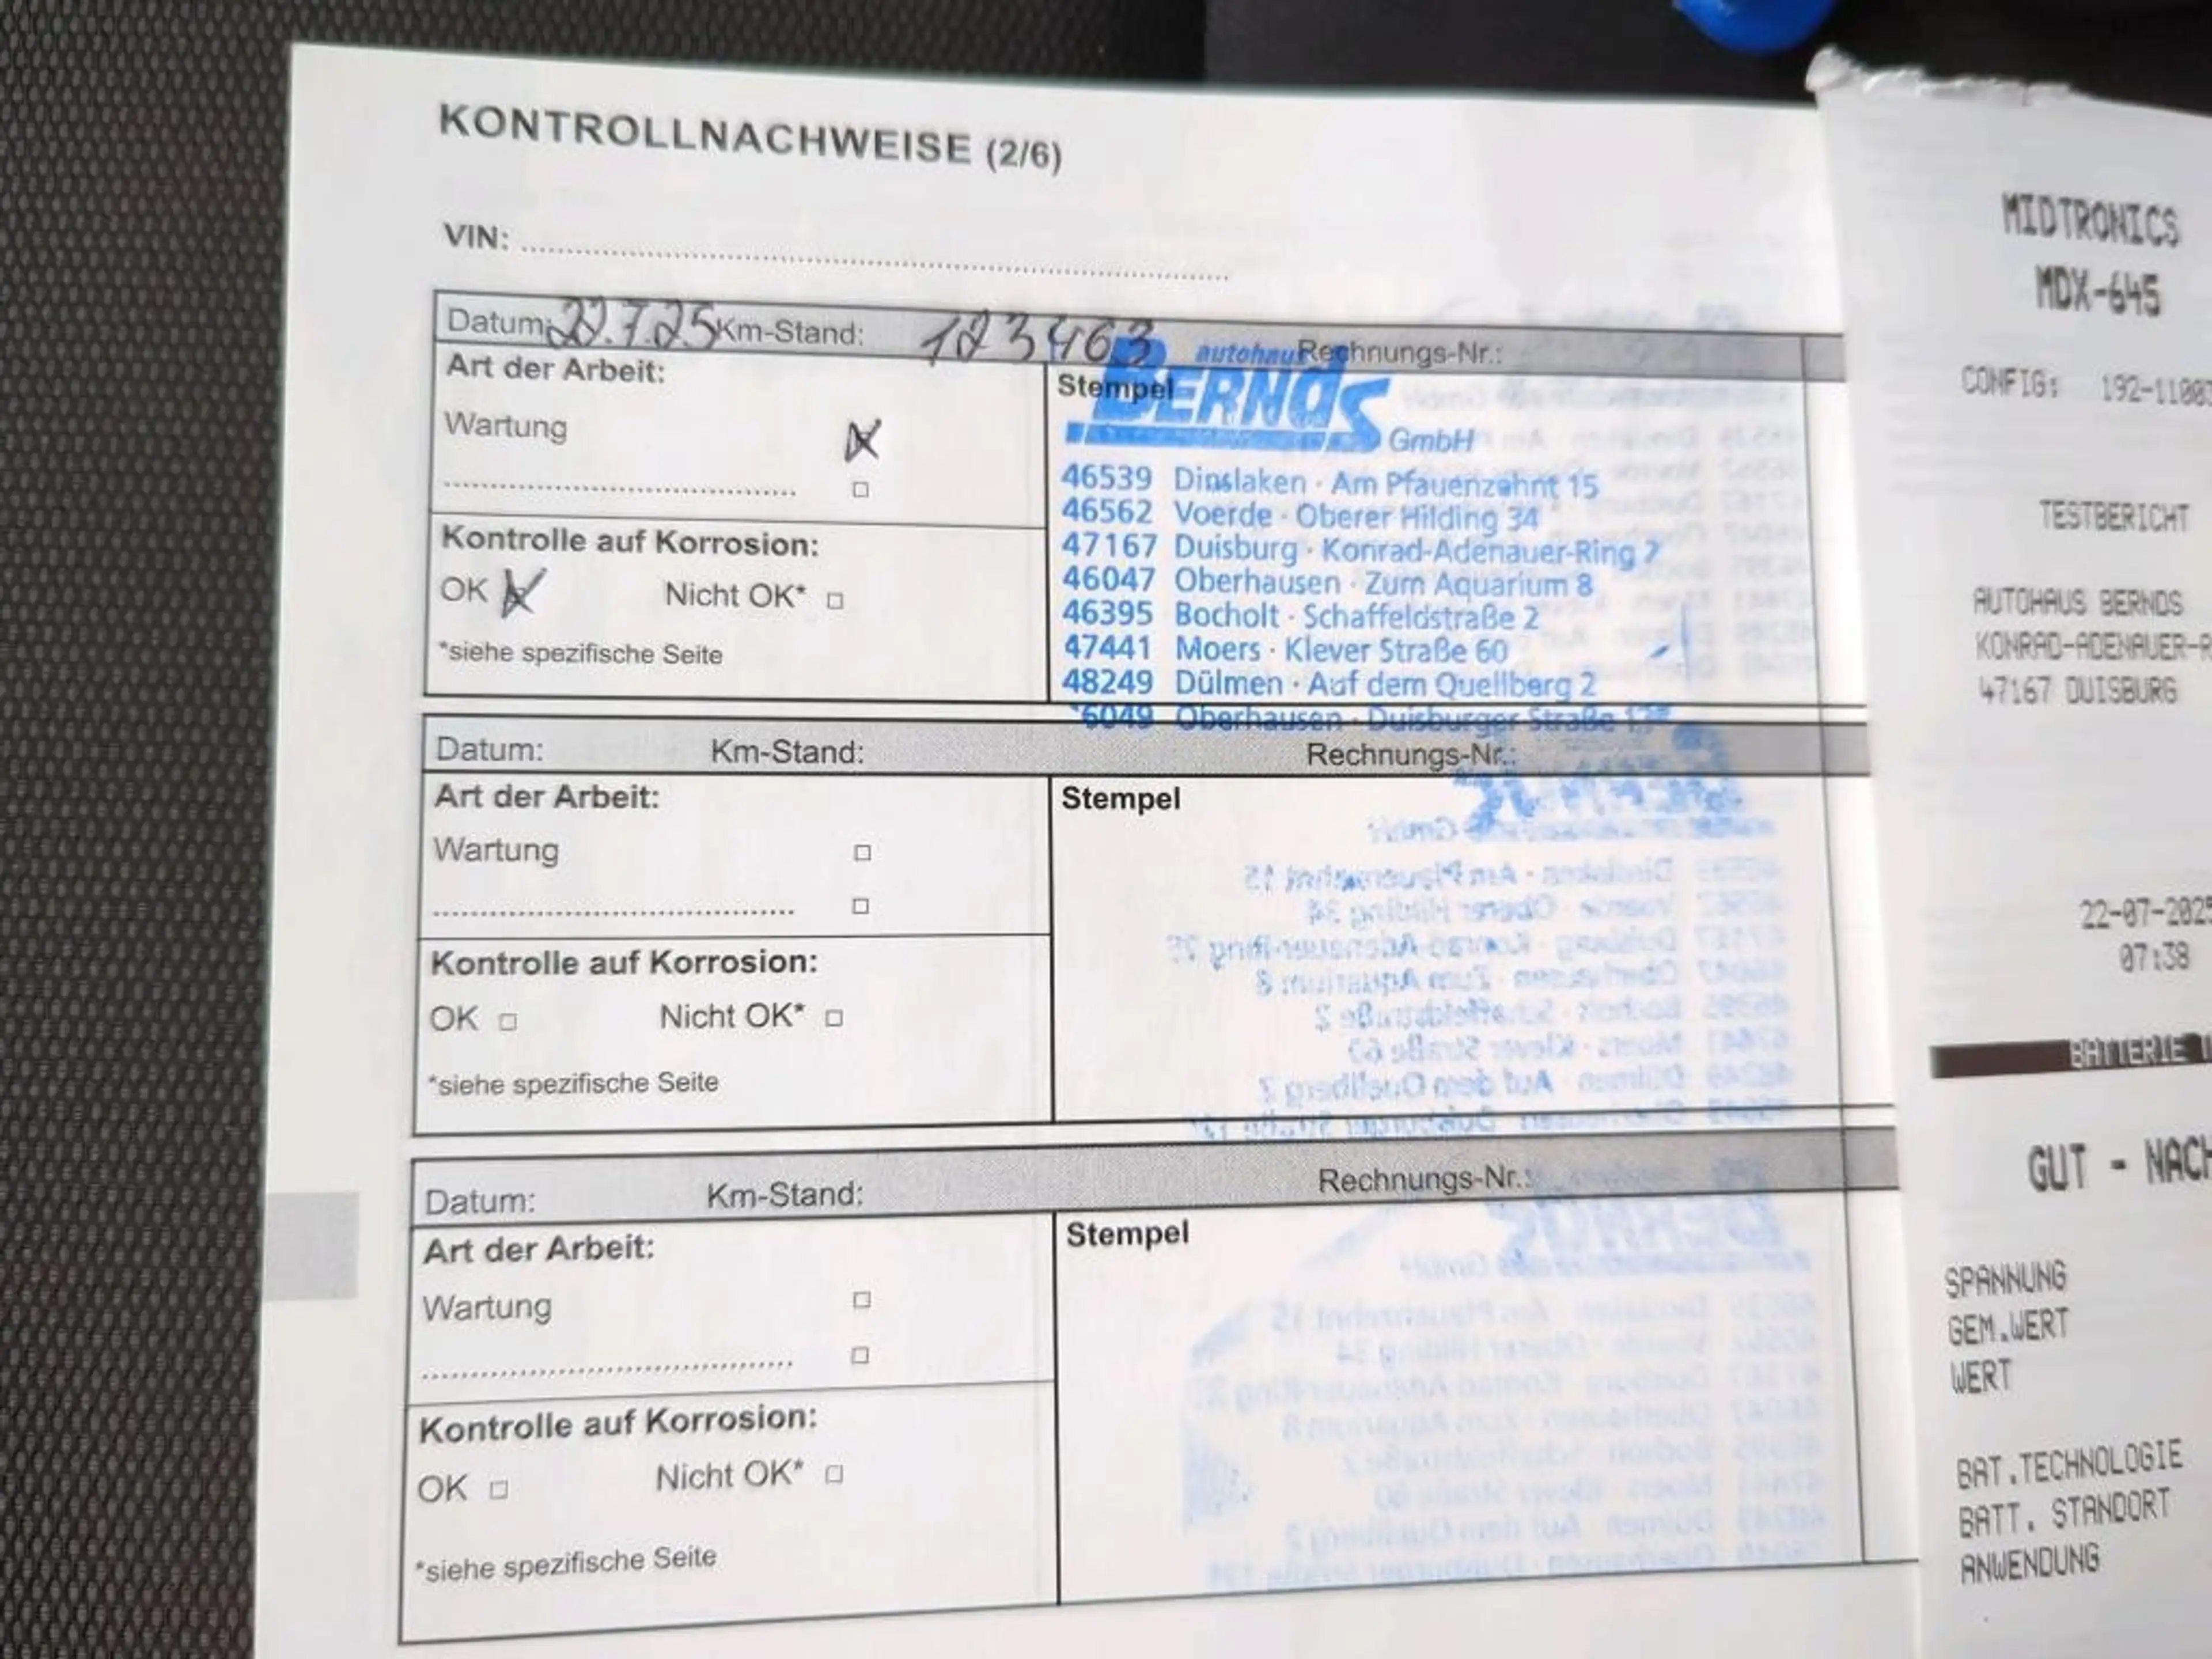 KONTROLLNACHWEISE (2/6)
VIN:
Datum: 22.7.25 Km-Stand: 123463 Rechnungs-Nr.:
Art der Arbeit:
Wartung
Kontrolle auf Korrosion:
OK Nicht OK*
*siehe spezifische Seite
Stempel
autohaus
BERNDS
GmbH
46539 Dinslaken · Am Pfauenzehnt 15
46562 Voerde · Oberer Hilding 34
47167 Duisburg · Konrad-Adenauer-Ring 7
46047 Oberhausen · Zum Aquarium 8
46395 Bocholt · Schaffeldstraße 2
47441 Moers · Klever Straße 60
48249 Dülmen · Auf dem Quellberg 2
6049 Oberhausen · Duisburger Straße
Datum: Km-Stand: Rechnungs-Nr.:
Art der Arbeit:
Wartung
Kontrolle auf Korrosion:
OK Nicht OK*
*siehe spezifische Seite
Stempel
Datum: Km-Stand: Rechnungs-Nr.:
Art der Arbeit:
Wartung
Kontrolle auf Korrosion:
OK Nicht OK*
*siehe spezifische Seite
Stempel
MIDTRONICS
MDX-645
CONFIG: 192-11003
TESTBERICHT
AUTOHAUS BERNDS
KONRAD-ADENAUER-R
47167 DUISBURG
22-07-2025
07:38
BATTERIE
GUT - NACH
SPANNUNG
GEM.WERT
WERT
BAT.TECHNOLOGIE
BATT. STANDORT
ANWENDUNG